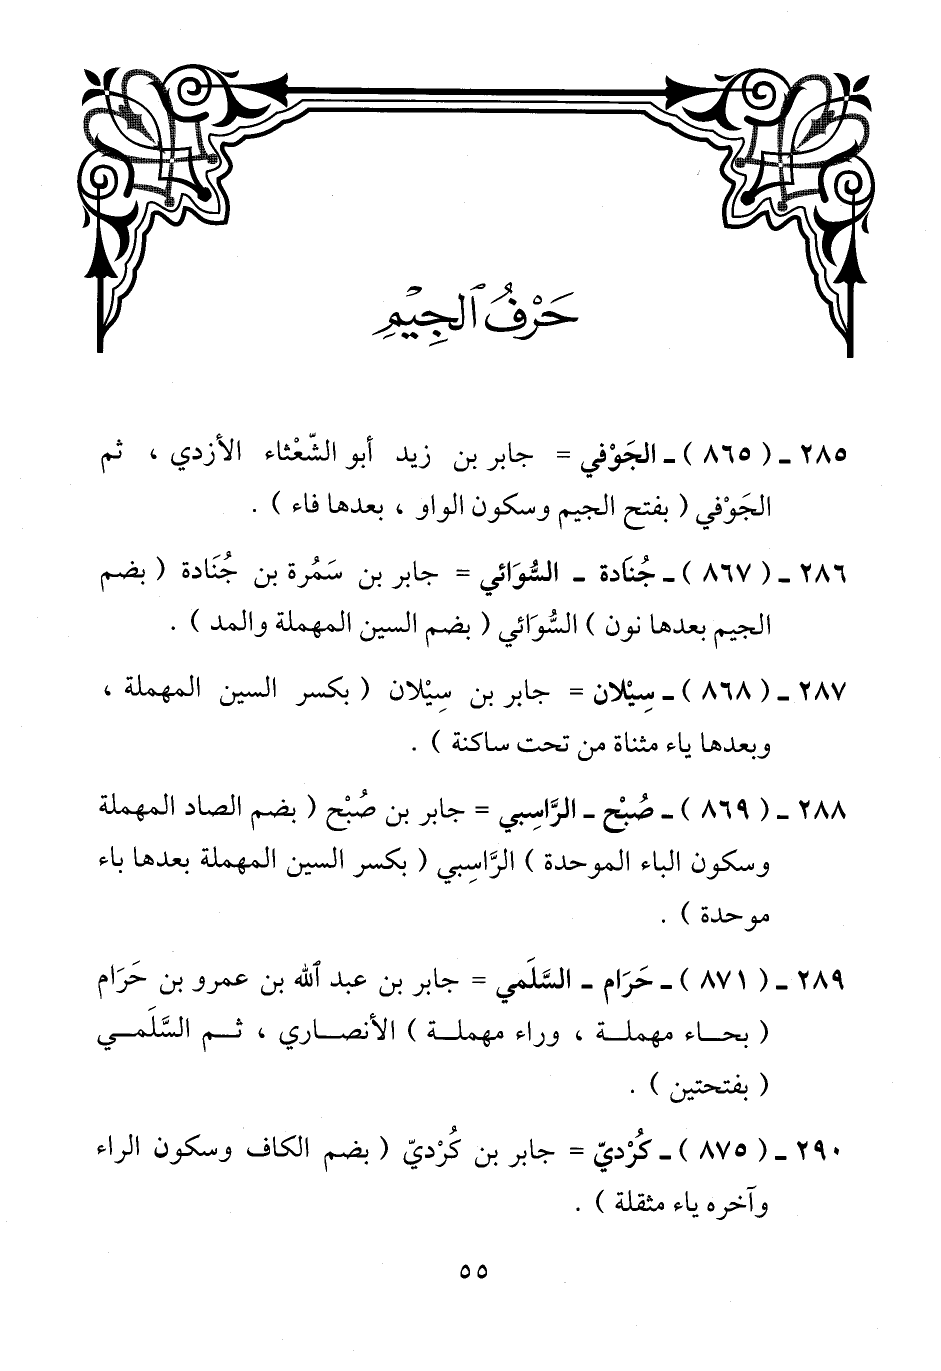 حَرْفُ ٱلْجِيْمِ
٢٨٥ ـ ( ٨٦٥ ) ـ الجَوْفي = جابر بن زيد أبو الشّعْثاء الأزدي ، ثم
الجَوْفي ( بفتح الجيم وسكون الواو ، بعدها فاء ) .
٢٨٦ ـ ( ٨٦٧ ) ـ جُنَادة ـ السُّوَائي = جابر بن سَمُرة بن جُنَادة ( بضم
الجيم بعدها نون ) السُّوَائي ( بضم السين المهملة والمد ) .
٢٨٧ ـ ( ٨٦٨ ) ـ سِيْلان = جابر بن سِيْلان ( بكسر السين المهملة ،
وبعدها ياء مثناة من تحت ساكنة ) .
٢٨٨ ـ ( ٨٦٩ ) ـ صُبْح ـ الرَّاسِبي = جابر بن صُبْح ( بضم الصاد المهملة
وسكون الباء الموحدة ) الرَّاسِبي ( بكسر السين المهملة بعدها باء
موحدة ) .
٢٨٩ ـ ( ٨٧١ ) ـ حَرَام ـ السَّلَمي = جابر بن عبد ٱلله بن عمرو بن حَرَام
( بحـاء مهملـة ، وراء مهملـة ) الأنصـاري ، ثـم السَّلَمـي
( بفتحتين ) .
٢٩٠ ـ ( ٨٧٥ ) ـ كُرْديّ = جابر بن كُرْديّ ( بضم الكاف وسكون الراء
وآخره ياء مثقلة ) .
٥٥